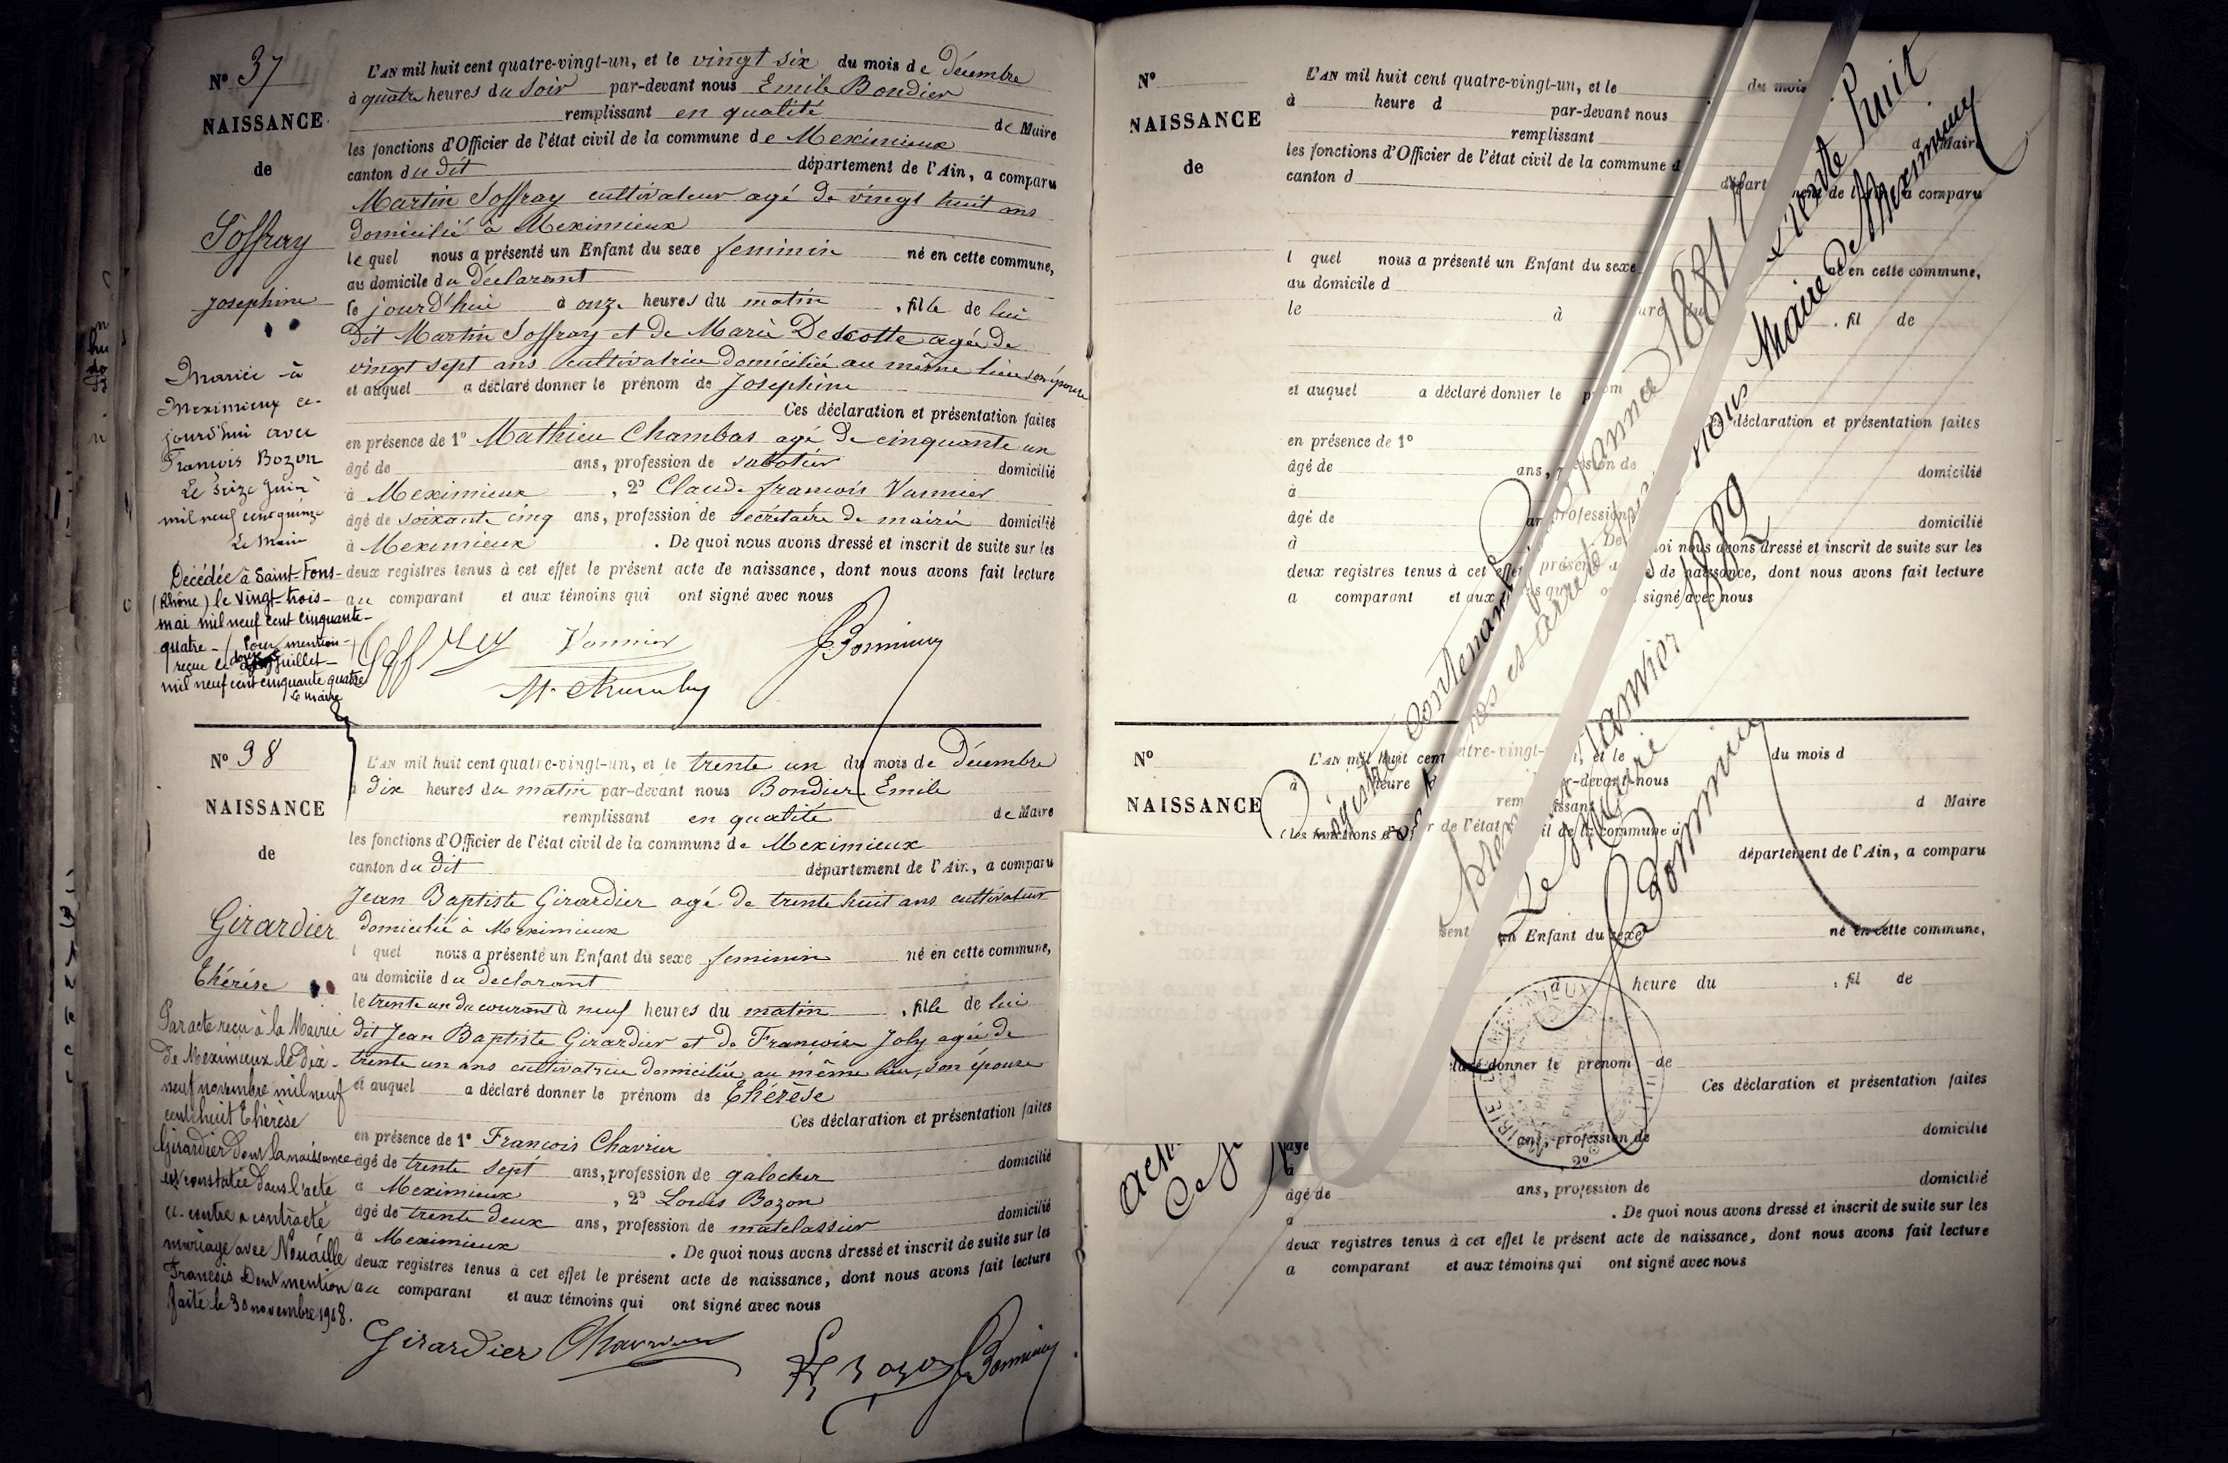 N° 37
NAISSANCE
de
Soffray
Josephine
Mariée à
Meximieux ce-
jourd'hui avec
François Bozon
Le seize Juin
mil neuf cent quinze
Le Maire
Décédée à Saint-Fons-
(Rhône) le vingt-trois-
mai mil neuf cent cinquante-
quatre - Pour mention-
reçue le douze juillet-
mil neuf cent cinquante quatre
Le maire
L'AN mil huit cent quatre-vingt-un, et le vingt six du mois de Décembre
à quatre heures du soir par-devant nous Emile Bondier
remplissant en qualité de Maire
les fonctions d'Officier de l'état civil de la commune de Meximieux
canton du dit département de l'Ain, a comparu
Martin Soffray cultivateur agé de vingt huit ans
domicilié à Meximieux
lequel nous a présenté un Enfant du sexe feminin né en cette commune,
au domicile du Déclarant
le jourd'hui à onze heures du matin, fille de lui
dit Martin Soffray et de Marie Descotte agée de
vingt sept ans cultivatrice domiciliée au même lieu son épouse
et auquel a déclaré donner le prénom de Josephine
Ces déclaration et présentation faites
en présence de 1° Mathieu Chambas agé de cinquante un
âgé de ans, profession de sabotier domicilié
à Meximieux, 2° Claude françois Vannier
âgé de soixante cinq ans, profession de secrétaire de mairie domicilié
à Meximieux. De quoi nous avons dressé et inscrit de suite sur les
deux registres tenus à cet effet le présent acte de naissance, dont nous avons fait lecture
au comparant et aux témoins qui ont signé avec nous
Vannier
N° 38
NAISSANCE
de
Girardier
Thérése
Par acte reçu à la Mairie
de Meximieux le dix-
neuf novembre mil neuf
cent huit Thérèse
Girardier dont la naissance
est constatée dans l'acte
ci-contre a contracté
mariage avec Nouaille
François Dont mention
faite le 30 novembre 1908.
L'AN mil huit cent quatre-vingt-un, et le trente un du mois de Décembre
à dix heures du matin par-devant nous Bondier Emile
remplissant en qualité de Maire
les fonctions d'Officier de l'état civil de la commune de Meximieux
canton du dit département de l'Ain, a comparu
Jean Baptiste Girardier agé de trente huit ans cultivateur
domicilié à Meximieux
l quel nous a présenté un Enfant du sexe feminin né en cette commune,
au domicile du declarant
le trente un du courant à neuf heures du matin, fille de lui
dit Jean Baptiste Girardier et de Françoise Joly agée de
trente un ans cultivatrice domiciliée au même lieu, son épouse
et auquel a déclaré donner le prénom de Thérèse
Ces déclaration et présentation faites
en présence de 1° François Chavrier
âgé de trente sept ans, profession de galocher domicilié
à Meximieux, 2° Louis Bozon
âgé de trente deux ans, profession de matelassier domicilié
à Meximieux. De quoi nous avons dressé et inscrit de suite sur les
deux registres tenus à cet effet le présent acte de naissance, dont nous avons fait lecture
au comparant et aux témoins qui ont signé avec nous
Girardier Chavrier
N°
NAISSANCE
de
L'AN mil huit cent quatre-vingt-un, et le du mois
à heure d par-devant nous
remplissant d Maire
les fonctions d'Officier de l'état civil de la commune d
canton d département de l'Ain, a comparu
l quel nous a présenté un Enfant du sexe né en cette commune,
au domicile d
le à heure du , fil de
et auquel a déclaré donner le prénom
Ces déclaration et présentation faites
en présence de 1°
âgé de ans, profession de domicilié
à
âgé de ans, profession domicilié
à De quoi nous avons dressé et inscrit de suite sur les
deux registres tenus à cet effet le présent acte de naissance, dont nous avons fait lecture
a comparant et aux témoins qui ont signé avec nous
N°
NAISSANCE
L'AN mil huit cent quatre-vingt-un, et le du mois d
à heure par-devant nous
remplissant d Maire
les fonctions d'Officier de l'état civil de la commune d
département de l'Ain, a comparu
un Enfant du sexe né en cette commune,
à heure du , fil de
déclaré donner le prénom de
Ces déclaration et présentation faites
âgé ans, profession de domicilié
à 2°
âgé de ans, profession de domicilié
à . De quoi nous avons dressé et inscrit de suite sur les
deux registres tenus à cet effet le présent acte de naissance, dont nous avons fait lecture
a comparant et aux témoins qui ont signé avec nous
registre contenant pour l'année 1881 trente huit
actes clos et arrêté par nous Maire de Meximieux
Ce janvier 1882
Le Maire